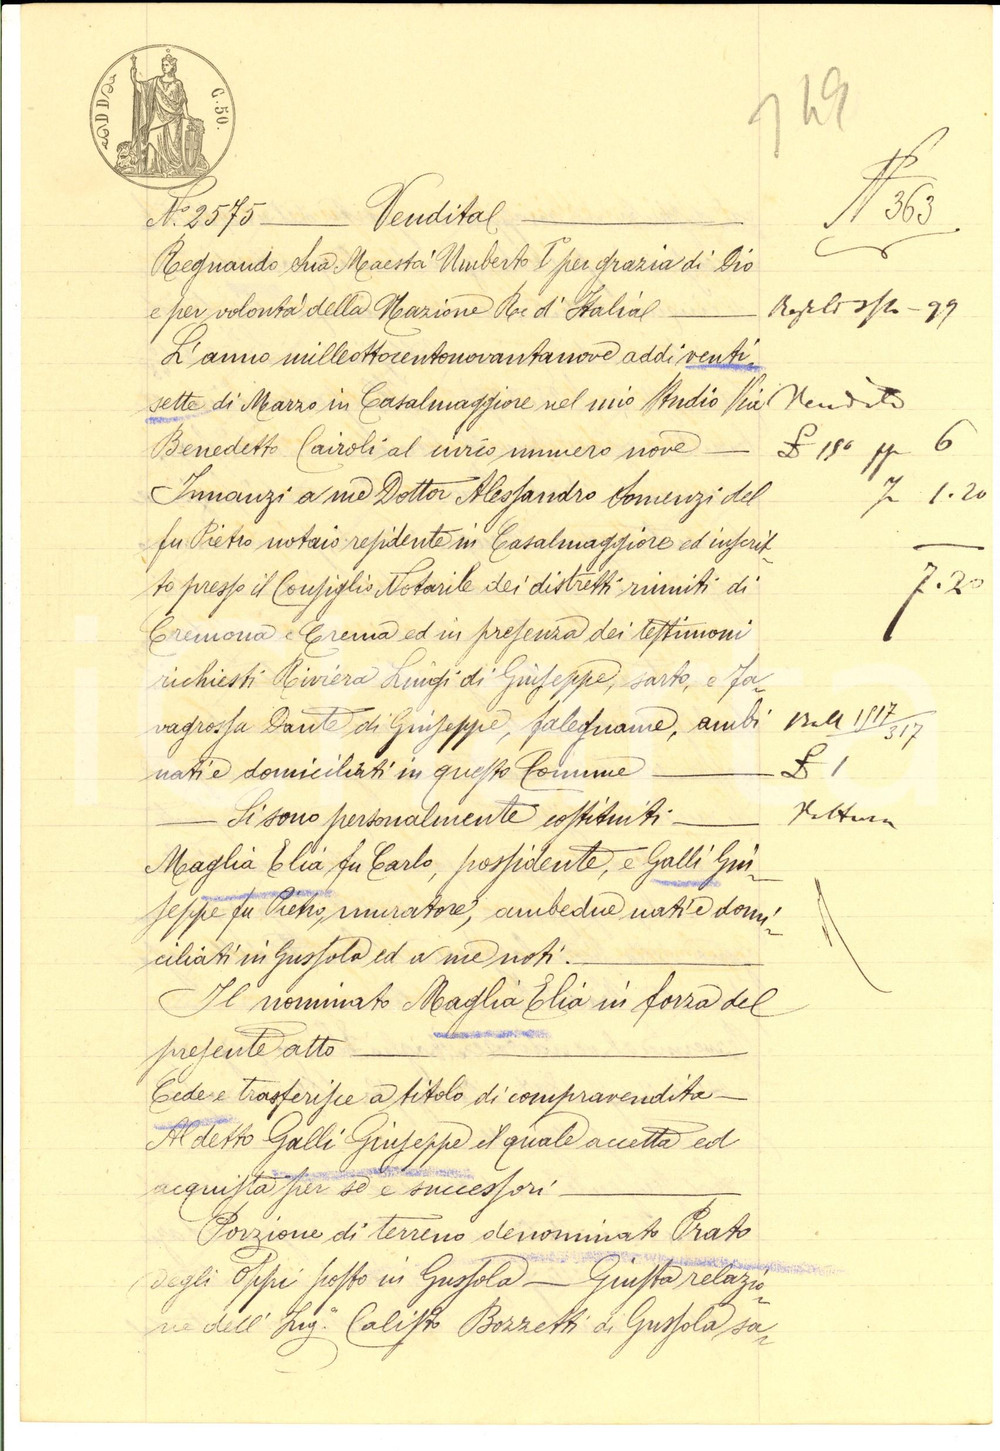 C. 50.
149
N° 363
N.° 2575 Vendita
Regnando Sua Maestá Umberto I° per grazia di Dio
e per volontá della Nazione Re d'Italia
99
L'anno milleottocentonovantanove addi venti-
sette di Marzo in Casalmaggiore nel mio Studio Via
Vendita
Benedetto Cairoli al civico numero nove
£ 150 pp 6
Innanzi a me Dottor Alessandro Somenzi del
1.20
fu Pietro notaio residente in Casalmaggiore ed inscrit-
to presso il Consiglio Notarile dei distretti riuniti di
7.20
Cremona e Crema ed in presenza dei testimoni
richiesti Riviera Luigi di Giuseppe, sarto, e Fa-
vagrossa Dante di Giuseppe, falegname, ambi
1517/317
nati e domiciliati in questo Comune
£ 1
Si sono personalmente costituiti
Voltura
Maglia Elia fu Carlo, possidente, e Galli Giu-
seppe fu Pietro, muratore, ambedue nati e domi-
ciliati in Gussola ed a me noti.
Il nominato Maglia Elia in forza del
presente atto
Cede e trasferisce a titolo di compravendita
Al detto Galli Giuseppe il quale accetta ed
acquista per sé e successori
Porzione di terreno denominato Prato
degli Oppi posto in Gussola — Giusta relazio-
ne dell' Ing.r Calisto Bozzetti di Gussola sa-